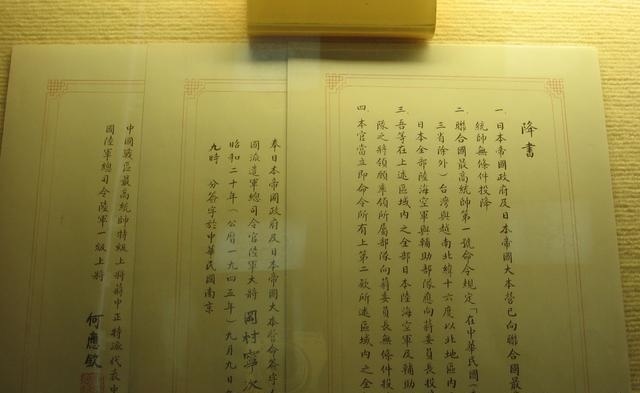 降書
一、日本帝國政府及日本帝國大本營已向聯合國最
統帥無條件投降
二、聯合國最高統帥第一號命令規定「在中華民國(
三省除外)台灣與越南北緯十六度以北地區內
日本全部陸海空軍與輔助部隊應向蔣委員長投
三、吾等在上述區域內之全部日本陸海空軍及輔助
隊之將領願率領所屬部隊向蔣委員長無條件投
四、本官當立即命令所有上第二款所述區域內之全
奉日本帝國政府及日本帝國大本營命簽字
國派遣軍總司令官陸軍大將 岡村寧次
昭和二十年(公曆一九四五年)九月九日
九時 分簽字於中華民國南京
中國戰區最高統帥特級上將蔣中正特派代表中
國陸軍總司令陸軍一級上將
何應欽